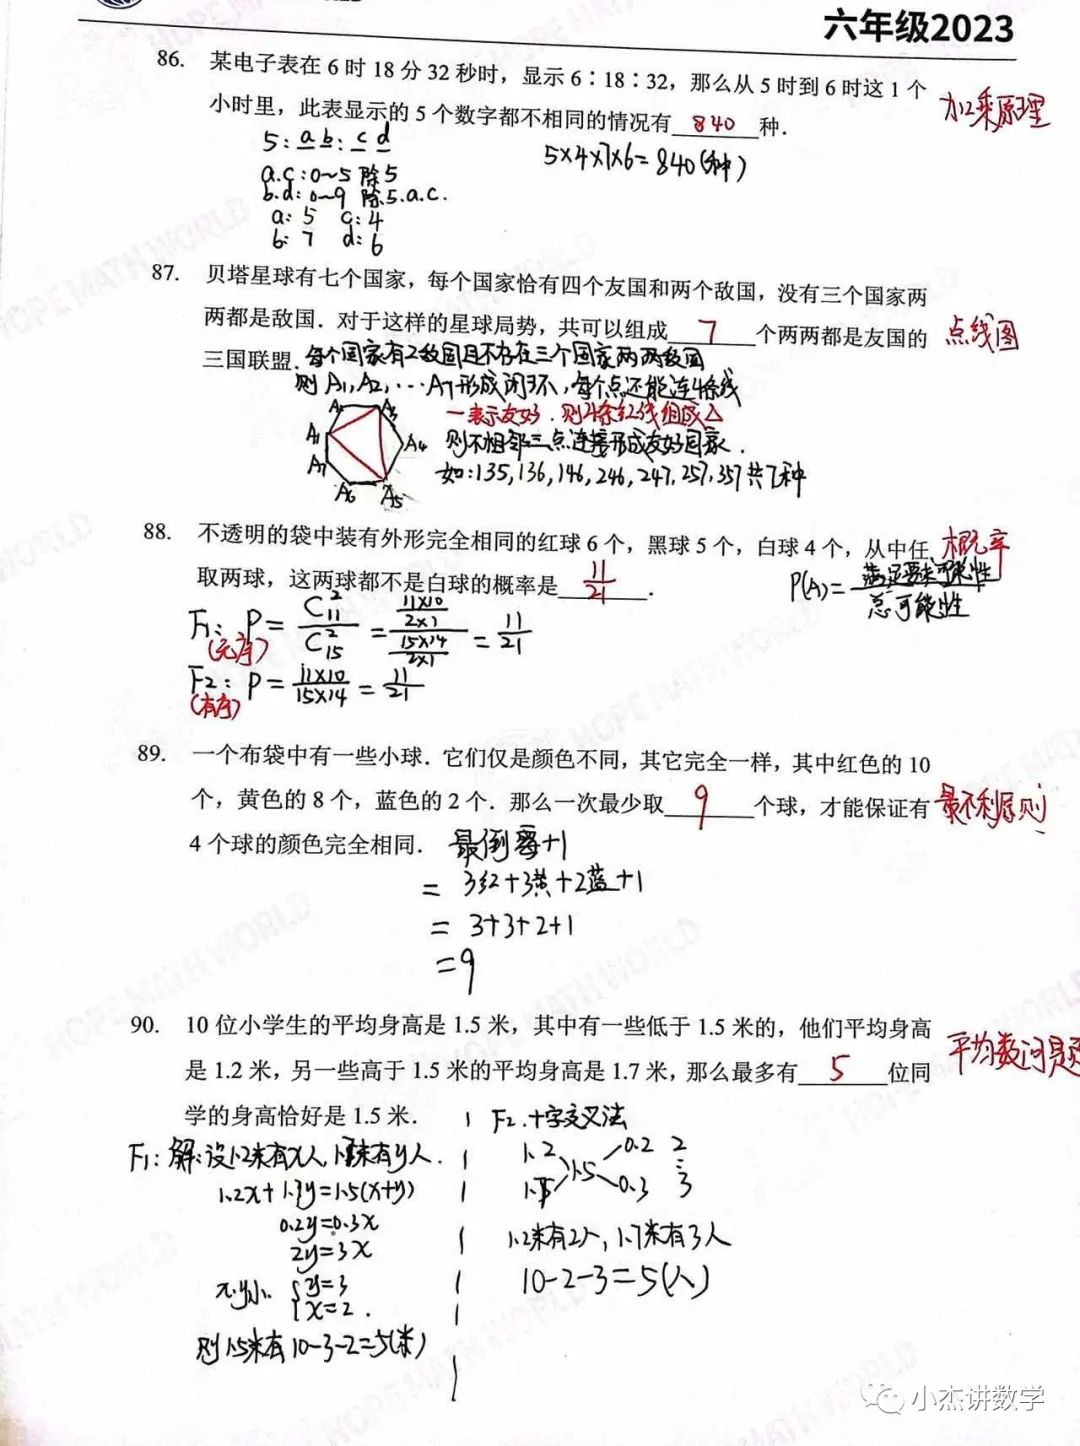 六年级2023
86. 某电子表在 6 时 18 分 32 秒时，显示 6∶18∶32，那么从 5 时到 6 时这 1 个
小时里，此表显示的 5 个数字都不相同的情况有 840 种．
加乘原理
5：a b：c d
5×4×7×6=840(种)
a.c：0~5 除5
b.d：0~9 除.5.a.c.
a：5 c：4
b：7 d：6
87. 贝塔星球有七个国家，每个国家恰有四个友国和两个敌国，没有三个国家两
两都是敌国．对于这样的星球局势，共可以组成 7 个两两都是友国的
点线图
三国联盟．
每个国家有2敌国且不存在三个国家两两敌国
则 A1,A2,…A7形成闭环,每个点还能连4条线
一表示友好．则4条红线组成△
则不相邻三点连接形成友好国家．
如:135,136,146,246,247,257,357共7种
A1 A3 A4 A5 A6 A7
88. 不透明的袋中装有外形完全相同的红球 6 个，黑球 5 个，白球 4 个，从中任
概率
取两球，这两球都不是白球的概率是 11/21 ．
P(A)=满足要求可能性/总可能性
F1：P=C²₁₁/C²₁₅=(11×10/2×1)/(15×14/2×1)=11/21
(无序)
F2：P=11×10/15×14=11/21
(有序)
89. 一个布袋中有一些小球．它们仅是颜色不同，其它完全一样，其中红色的 10
个，黄色的 8 个，蓝色的 2 个．那么一次最少取 9 个球，才能保证有
最不利原则
4 个球的颜色完全相同．
最倒霉+1
= 3红+3黄+2蓝+1
= 3+3+2+1
=9
90. 10 位小学生的平均身高是 1.5 米，其中有一些低于 1.5 米的，他们平均身高
是 1.2 米，另一些高于 1.5 米的平均身高是 1.7 米，那么最多有 5 位同
平均数问题
学的身高恰好是 1.5 米．
F1：解:设1.2米有x人,1.7米有y人．
1.2x+1.7y=1.5(x+y)
0.2y=0.3x
2y=3x
x.y小. {y=3
x=2．
则1.5米有10-3-2=5(米)
F2.十字交叉法
1.2 0.2 2
1.5
1.7 0.3 3
1.2米有2人,1.7米有3人
10-2-3=5(人)
小杰讲数学